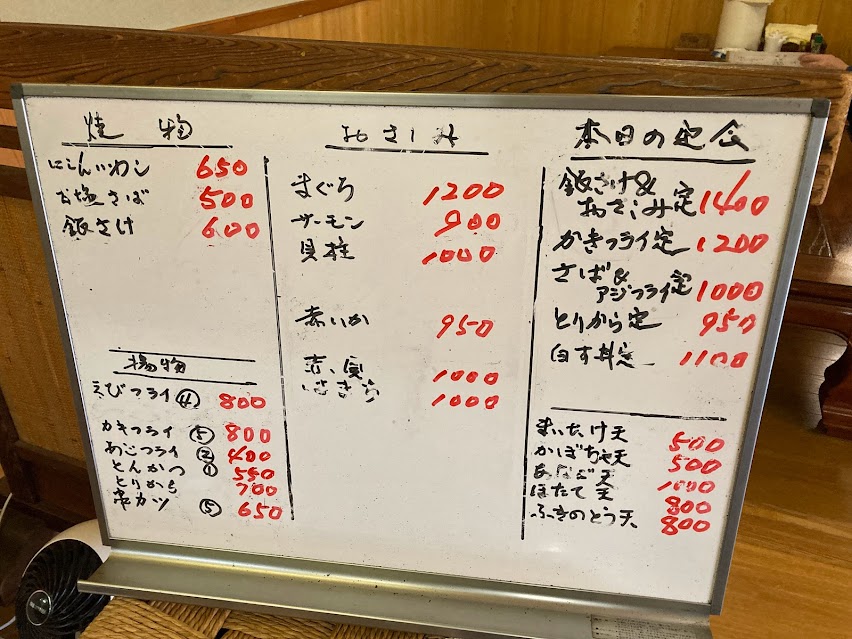 焼物
にしんいわし 650
お塩さば 500
銀さけ 600
揚物
えびフライ ④ 800
かきフライ ⑤ 800
あじフライ ② 400
とんかつ ① 550
とりから 700
串カツ ⑤ 650
おさしみ
まぐろ 1200
サーモン 900
貝柱 1000
赤いか 950
赤貝 1000
いさきら 1000
本日の定食
銀さけ&
おさしみ定 1400
かきフライ定 1200
さば&
アジフライ定 1000
とりから定 950
白す丼定 1100
まいたけ天 500
かぼちゃ天 500
あなご天 1000
ほたて天 800
ふきのとう天 800